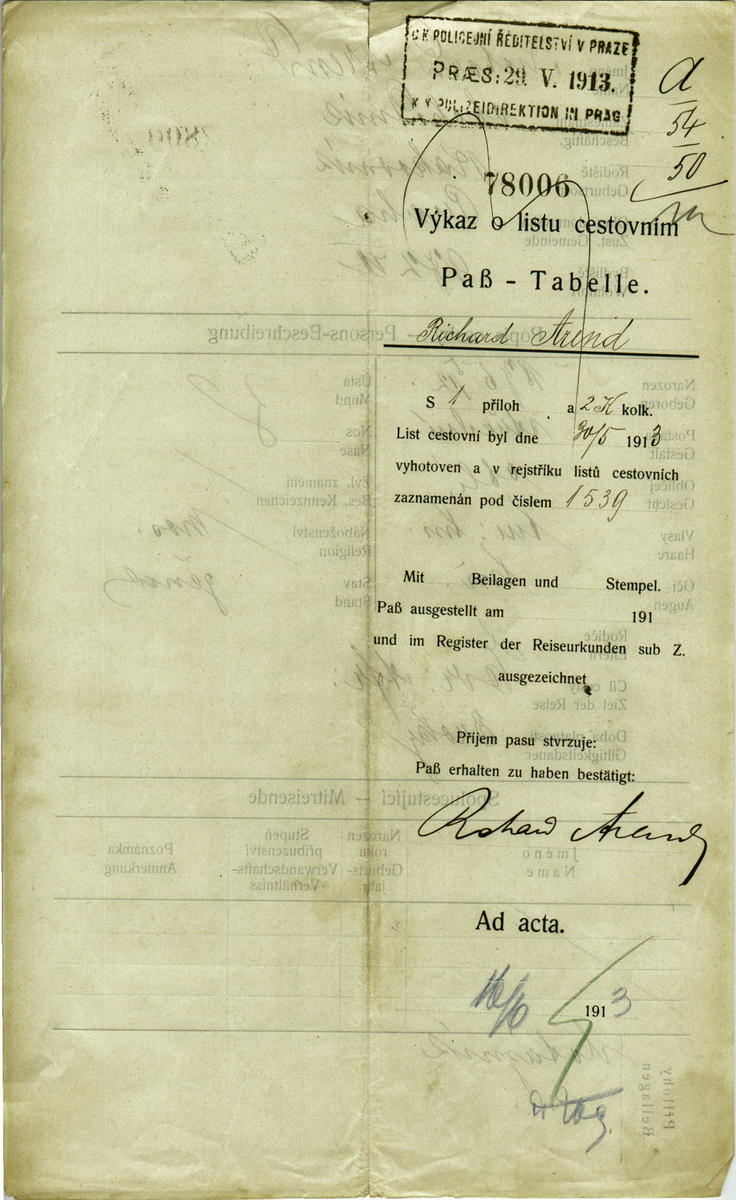 C K POLICEJNÍ ŘEDITELSTVÍ V PRAZE
PRÆS: 29. V. 1913.
K K POLIZEIDIREKTION IN PRAG
a
54
50
78006
Výkaz o listu cestovním
Paß - Tabelle.
Richard Arend
S 1 příloh a 2 K kolk.
List cestovní byl dne 30/5 1913
vyhotoven a v rejstříku listů cestovních
zaznamenán pod číslem 1539
Mit Beilagen und Stempel.
Paß ausgestellt am 191
und im Register der Reiseurkunden sub Z.
ausgezeichnet
Příjem pasu stvrzuje:
Paß erhalten zu haben bestätigt:
Richard Arend
Ad acta.
16/6 1913